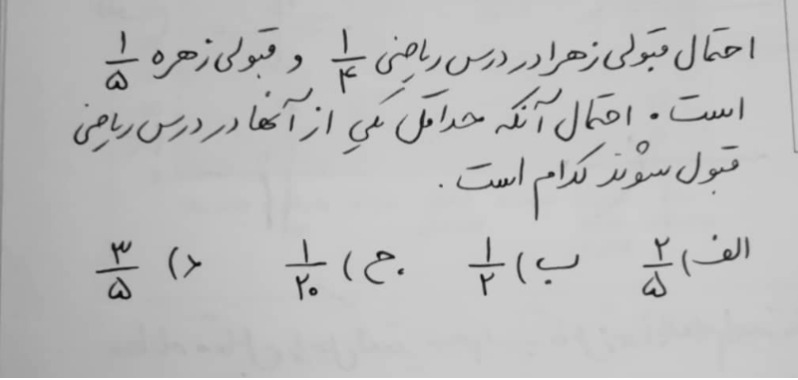 احتمال قبولی زهرا در درس ریاضی ۱/۴ و قبولی زهره ۱/۵
است. احتمال آنکه حداقل یکی از آنها در درس ریاضی
قبول شوند کدام است.
الف) ۲/۵ ب) ۱/۲ ج) ۱/۲۰ د) ۳/۵